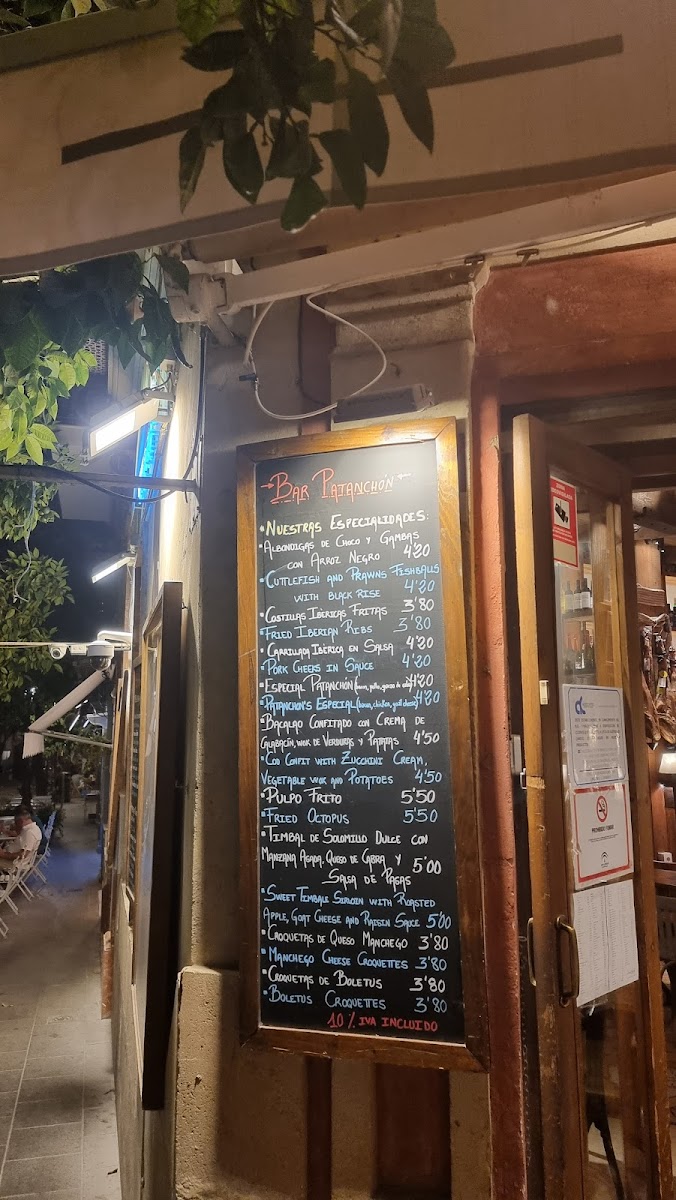 BAR PATANCHÓN
• NUESTRAS ESPECIALIDADES:
• ALBONDIGAS DE CHOCO Y GAMBAS
CON ARROZ NEGRO 4'20
• CUTTLEFISH AND PRAWNS FISHBALLS
WITH BLACK RISE 4'20
• COSTILLAS IBERICAS FRITAS 3'80
• FRIED IBERIAN RIBS 3'80
• CARRILLADA IBÉRICA EN SALSA 4'20
• PORK CHEEKS IN SAUCE 4'20
• ESPECIAL PATANCHÓN 4'20
• PATANCHON'S ESPECIAL 4'20
• BACALAO CONFITADO CON CREMA DE
CALABACÍN, WOK DE VERDURAS Y PATATAS 4'50
• COD CONFIT WITH ZUCCHINI CREAM,
VEGETABLE WOK AND POTATOES 4'50
• PULPO FRITO 5'50
• FRIED OCTOPUS 5'50
• TIMBAL DE SOLOMILLO DULCE CON
MANZANA ASADA, QUESO DE CABRA Y 5'00
SALSA DE PASAS
• SWEET TIMBALE SIRLOIN WITH ROASTED
APPLE, GOAT CHEESE AND RAISIN SAUCE 5'00
• CROQUETAS DE QUESO MANCHEGO 3'80
• MANCHEGO CHEESE CROQUETTES 3'80
• CROQUETAS DE BOLETUS 3'80
• BOLETUS CROQUETTES 3'80
10% IVA INCLUIDO
PROHIBIDO FUMAR